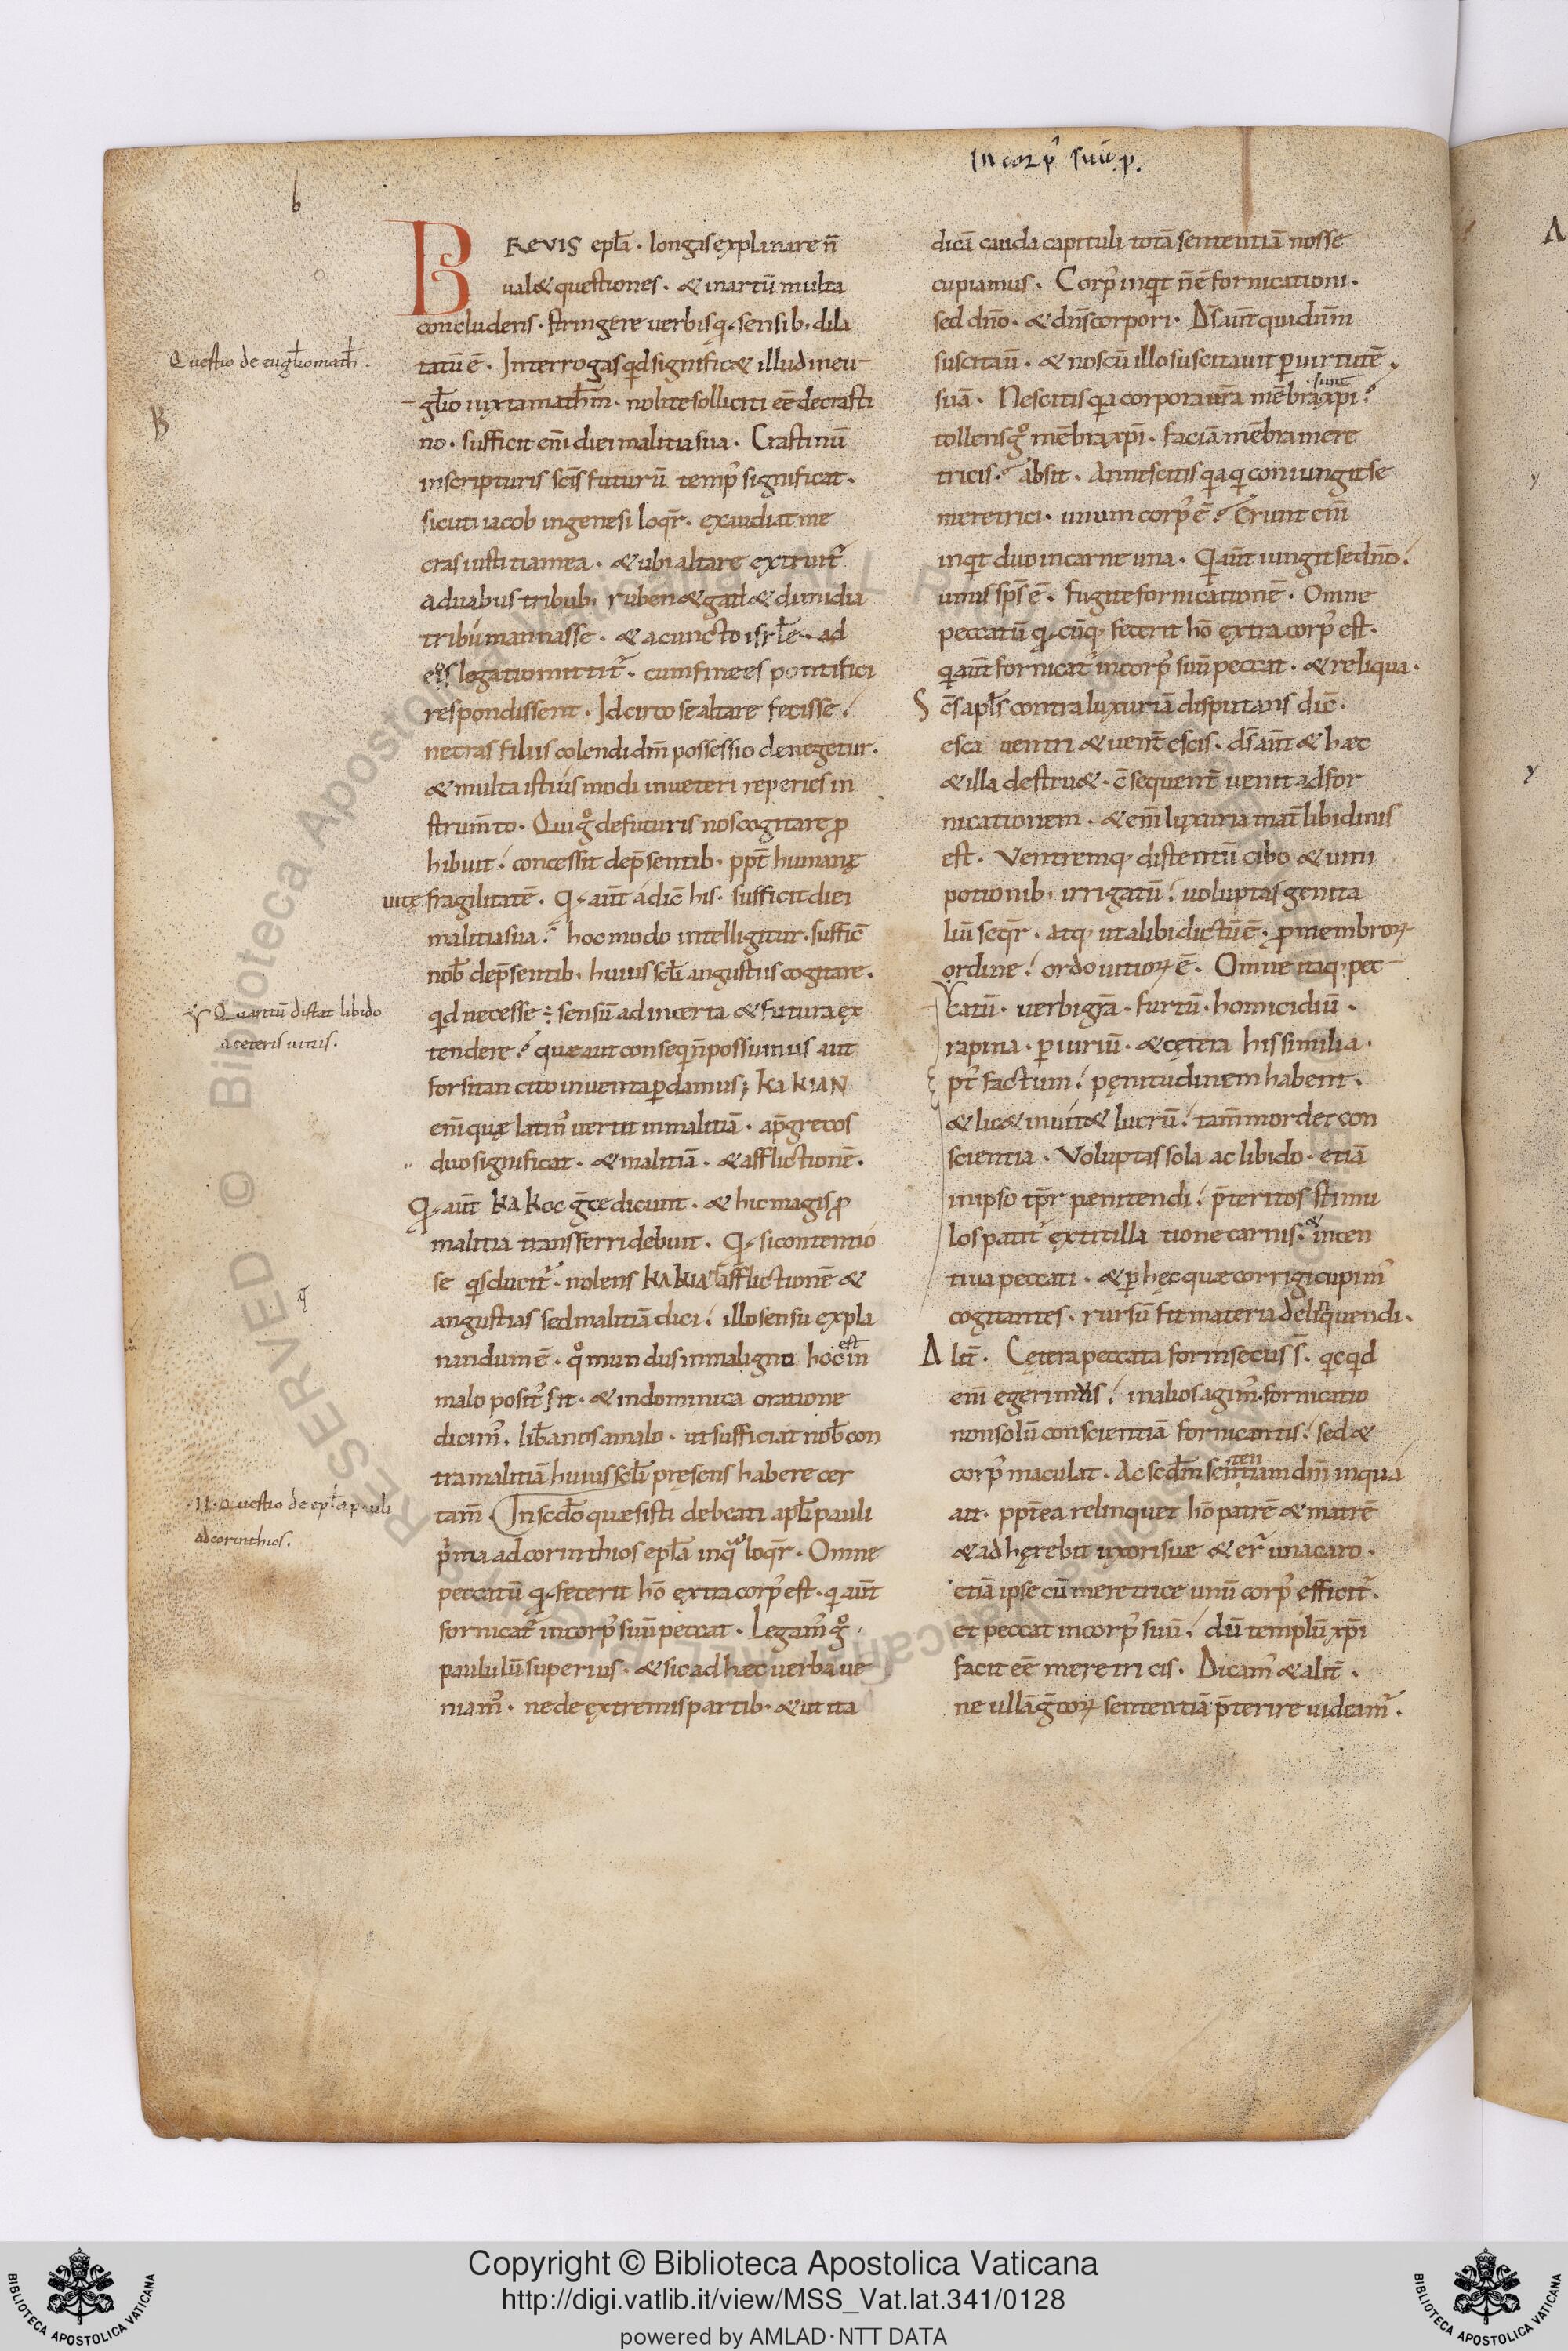 In corp̉ suū. p.
b
BREVIS epl̄a · longas ęxplanare n̄
ualet questiones · & in artū multa
concludens · stringere uerbisq; sensib; dila
tatū ē · Interrogas qd significet illud in eu
gl̄io iuxta math̄m · nolite solliciti eē de crasti
no · sufficit eni diei malitia sua · Crastinū
in scripturis scīs futurū temp̉ significat ·
sicuti iacob in genesi loqr̄ · exaudiat me
cras iustitia mea · & ubi altare extruit̉
a duabus tribub; ruben & gad & dimidia
tribu mannasse · & a cuncto isrl̄e · ad
eos legatio mittit̉ · cum finees pontifici
respondissent · Idcirco se altare fecisse
ne cras filiis colendi dm̄ possessio denegetur ·
& multa istiusmodi in ueteri reperies in
strum̄to · Qui g̊ de futuris nos cogitare ꝓ
hibuit concessit de p̄sentib; ppt̄ humanę
uitę fragilitatē · Qd aūt adic̄ his · sufficit diei
malitia sua · hoc modo intelligitur · suffic̄
nob̄ de p̄sentib; huius scl̄i angustiis cogitare ·
qd necesse ÷ sensū ad incerta & futura ęx
tendere · quę aut consequi n̄ possumus aut
forsitan cito inuenta ꝑdamus; KAKIAN
eni quę latin̉ uertit in malitiā · ap̄ grecos
duo significat · & malitiā · & afflictionē ·
Qd aūt KAKOC gr̄ce dicunt · & hic magis ꝓ
malitia transferri debuit · Qd si contentio
se qs ducit̉ · nolens KAKIA afflictionē &
angustias sed malitiā dici illo sensu expla
nandum ē · qo mundus in maligno hoc est in
malo posit̉ sit · & in dominica oratione
dicim̉ · lib̄a nos a malo · ut sufficiat nob̄ con
tra malitiā huius scl̄i pręsens habere cer
tam̄ · In scd̄o quęsisti de beati apl̄i pauli
p̄ma ad corinthios epl̄a in quo loqr̄ · Omne
peccatū qd fecerit hō ęxtra corp̉ est · q aūt
fornicat̉ in corp̉ suū peccat · Legam̉ g̊
paululū superius · & sic ad hęc uerba ue
niam̉ · ne de ęxtremis partib; & ut ita
Questio de eugl̄io math̄ ·
Quantū distat libido
a ceteris uitiis ·
II · Questio de epl̄a pauli
ad corinthios ·
dicā cauda capituli totā sententiā nosse
cupiamus · Corp̉ inqt n̄ ē fornicationi ·
sed dn̄o · & dn̄s corpori · Ds̄ aūt qui dnm̄
suscitau · & nos cū illo suscitauit ꝑ uirtutē
suā · Nescitis qa corpora ur̄a mēbra sunt xp̄i
tollens g̊ mēbra xp̄i · faciā mēbra mere
tricis · absit · An nescitis qa q coniungit se
meretrici · unum corp̉ ē · Erunt eni
inqt duo in carne una · Q aūt iungit se dn̄o
unus sps̄ ē · Fugite fornicationē · Omne
peccatū qdcūq; fecerit hō ęxtra corp̉ est ·
q aūt fornicat̉ in corp̉ suū peccat · & reliqua ·
Sc̄s apl̄s contra luxuriā disputans dic̄ ·
esca uentri & uent̄ escis · ds̄ aūt & hęc
& illa destruet · c̄sequent̄ uenit ad for
nicationem · & eni luxuria mat̄ libidinis
est · Ventremq; distentū cibo & uini
potionib; irrigatū uoluptas genita
liū seqr̄ · atq; ut alibi dictū ē · ꝓ membroꝝ
ordine ordo uitioꝝ ē · Omne itaq; pec
catū · uerbi gr̄a · furtū · homicidiū ·
rapina · ꝑiuriū · & cętera his similia ·
pt̄ factum pęnitudinem habent ·
& licet inuitet lucrū tam̄ mordet con
scientia · Voluptas sola ac libido · etiā
in ipso tpr̄ penitendi p̄teritos stimu
los patit̉ ęx titillatione carnis · & incen
tiua peccati · & ꝑ hęc quę corrigi cupim̉
cogitantes · rursū fit materia delinquendi ·
Alit̄ · Cętera peccata forinsecus s̄ · qcqd
eni egerimus in alios agim̉ · fornicatio
non solū conscientiā fornicantis sed &
corp̉ maculat · Ac scdm̄ sententiam dnī in qua
ait · ppt̄ea relinquet hō patrē & matrē
& adhęrebit uxori sue & er̄ una caro ·
etiā ipse cū meretrice unū corp̉ efficit̉ ·
et peccat in corp̉ suū dū templū xp̄i
facit eē meretricis · Dicam̉ & alit̄ ·
ne ullā gr̄coꝝ sententiā p̄terire uideam̉ ·
RESERVED © Biblioteca Apostolica Vaticana ALL RIGHTS
Copyright © Biblioteca Apostolica Vaticana
http://digi.vatlib.it/view/MSS_Vat.lat.341/0128
powered by AMLAD·NTT DATA
BIBLIOTECA APOSTOLICA VATICANA
BIBLIOTECA APOSTOLICA VATICANA